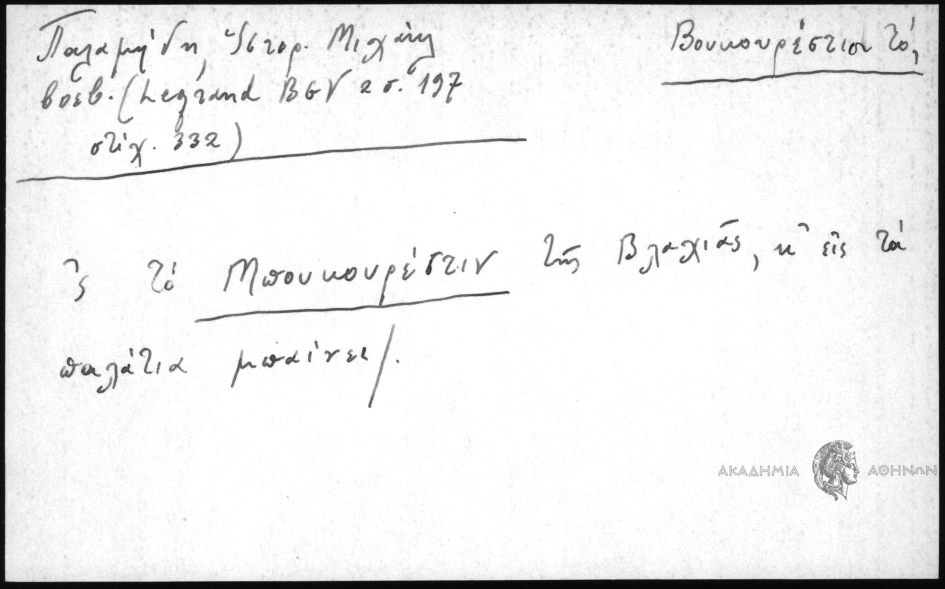 Παλαμήδη, Ἱστορ. Μιχαὴλ
Βουκουρέστιον τό,
βοεβ. (Legrand BGV 2 σ. 197
στίχ. 332)
ἲς τὸ Μπουκουρέστιν τῆς Βλαχιᾶς, κ' εἰς τὰ
παλάτια μπαίνει/.
ΑΚΑΔΗΜΙΑ ΑΘΗΝΩΝ